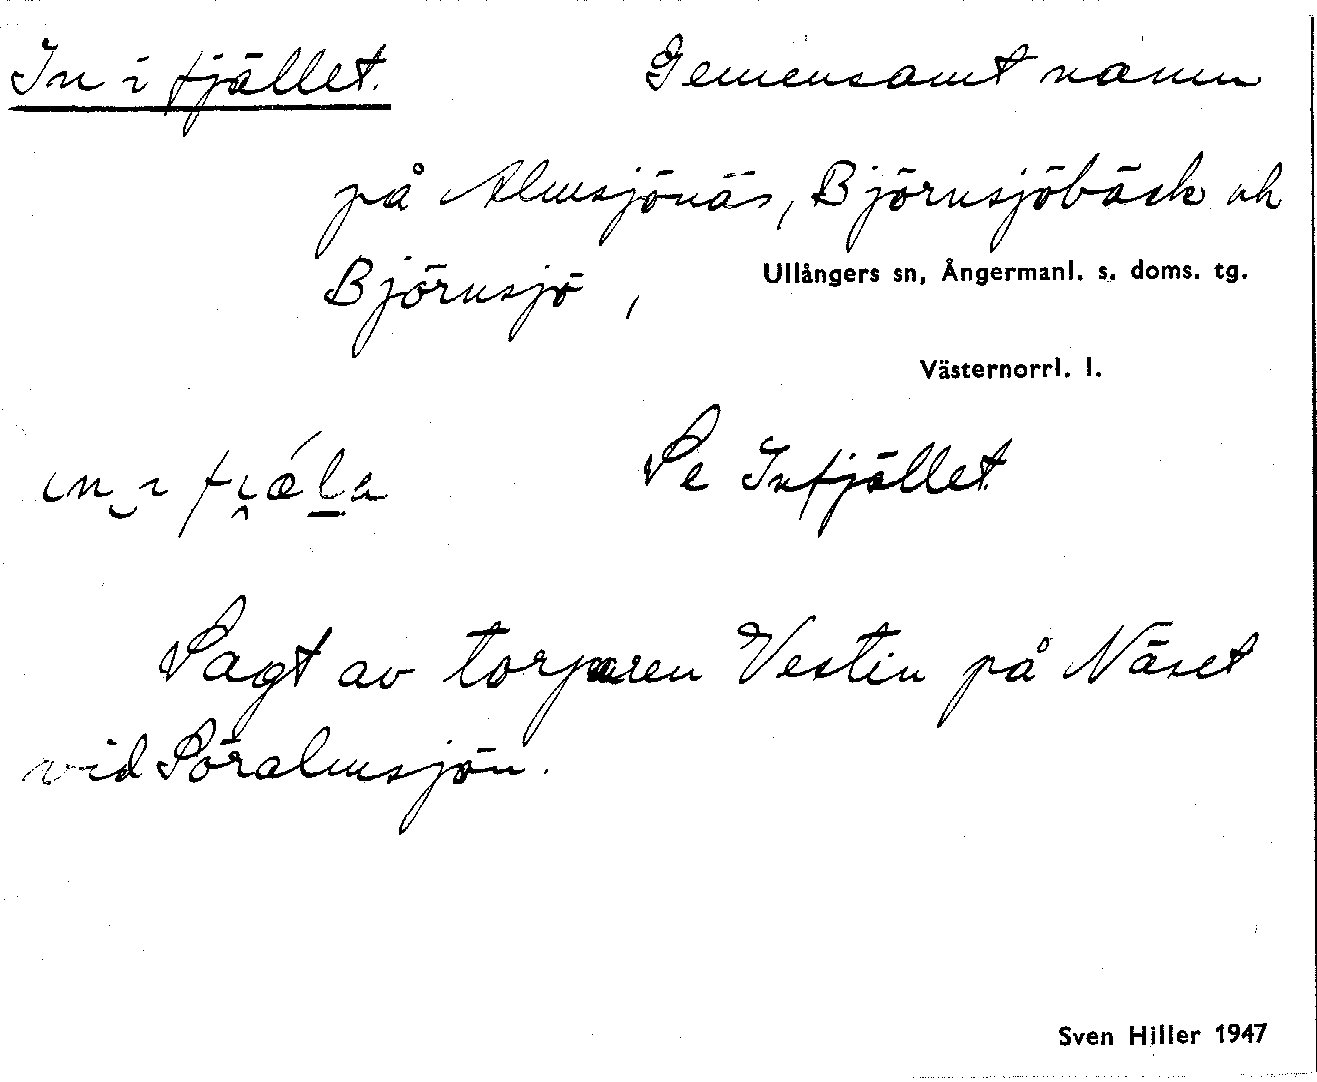 In i fjället. Gemensamt namn
på Almsjönäs, Björnsjöbäck och
Björnsjö,
Ullångers sn, Ångermanl. s. doms. tg.
Västernorrl. l.
Se Infjället
Sagt av torparen Vestin på Näset
vid Söralmsjön.
Sven Hiller 1947